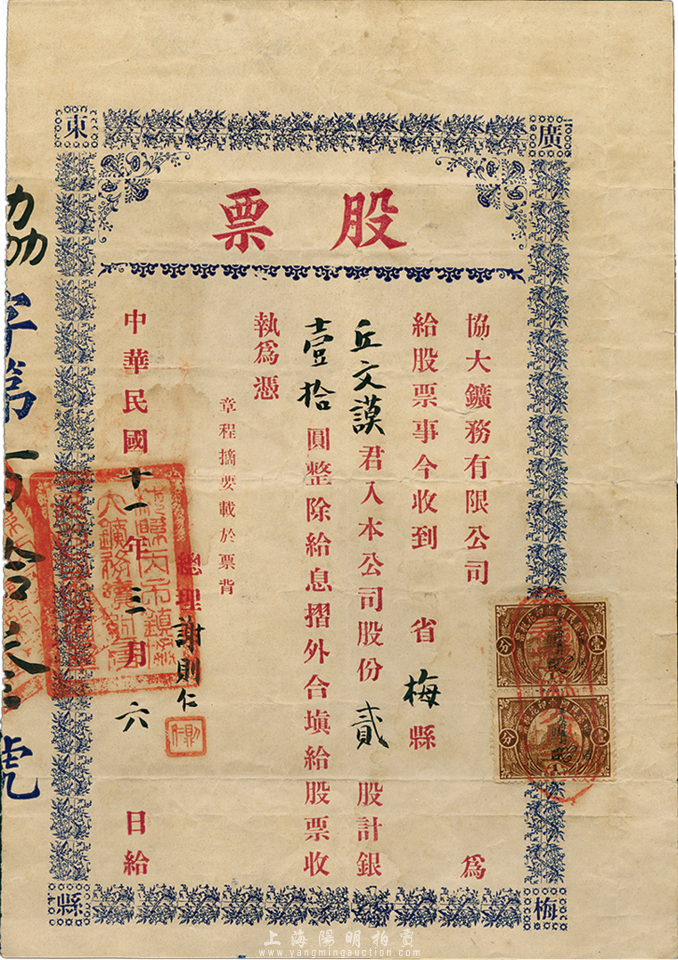 廣東
梅縣
股票
協大鑛務有限公司 為
給股票事今收到 省梅縣
丘文謨君入本公司股份貳股計銀
壹拾圓整除給息摺外合填給股票收
執為憑
章程摘要載於票背
總理謝則仁
中華民國十一年三月六日給
協字第
號
壹分
壹分
上海陽明拍賣
www.yangmingauction.com